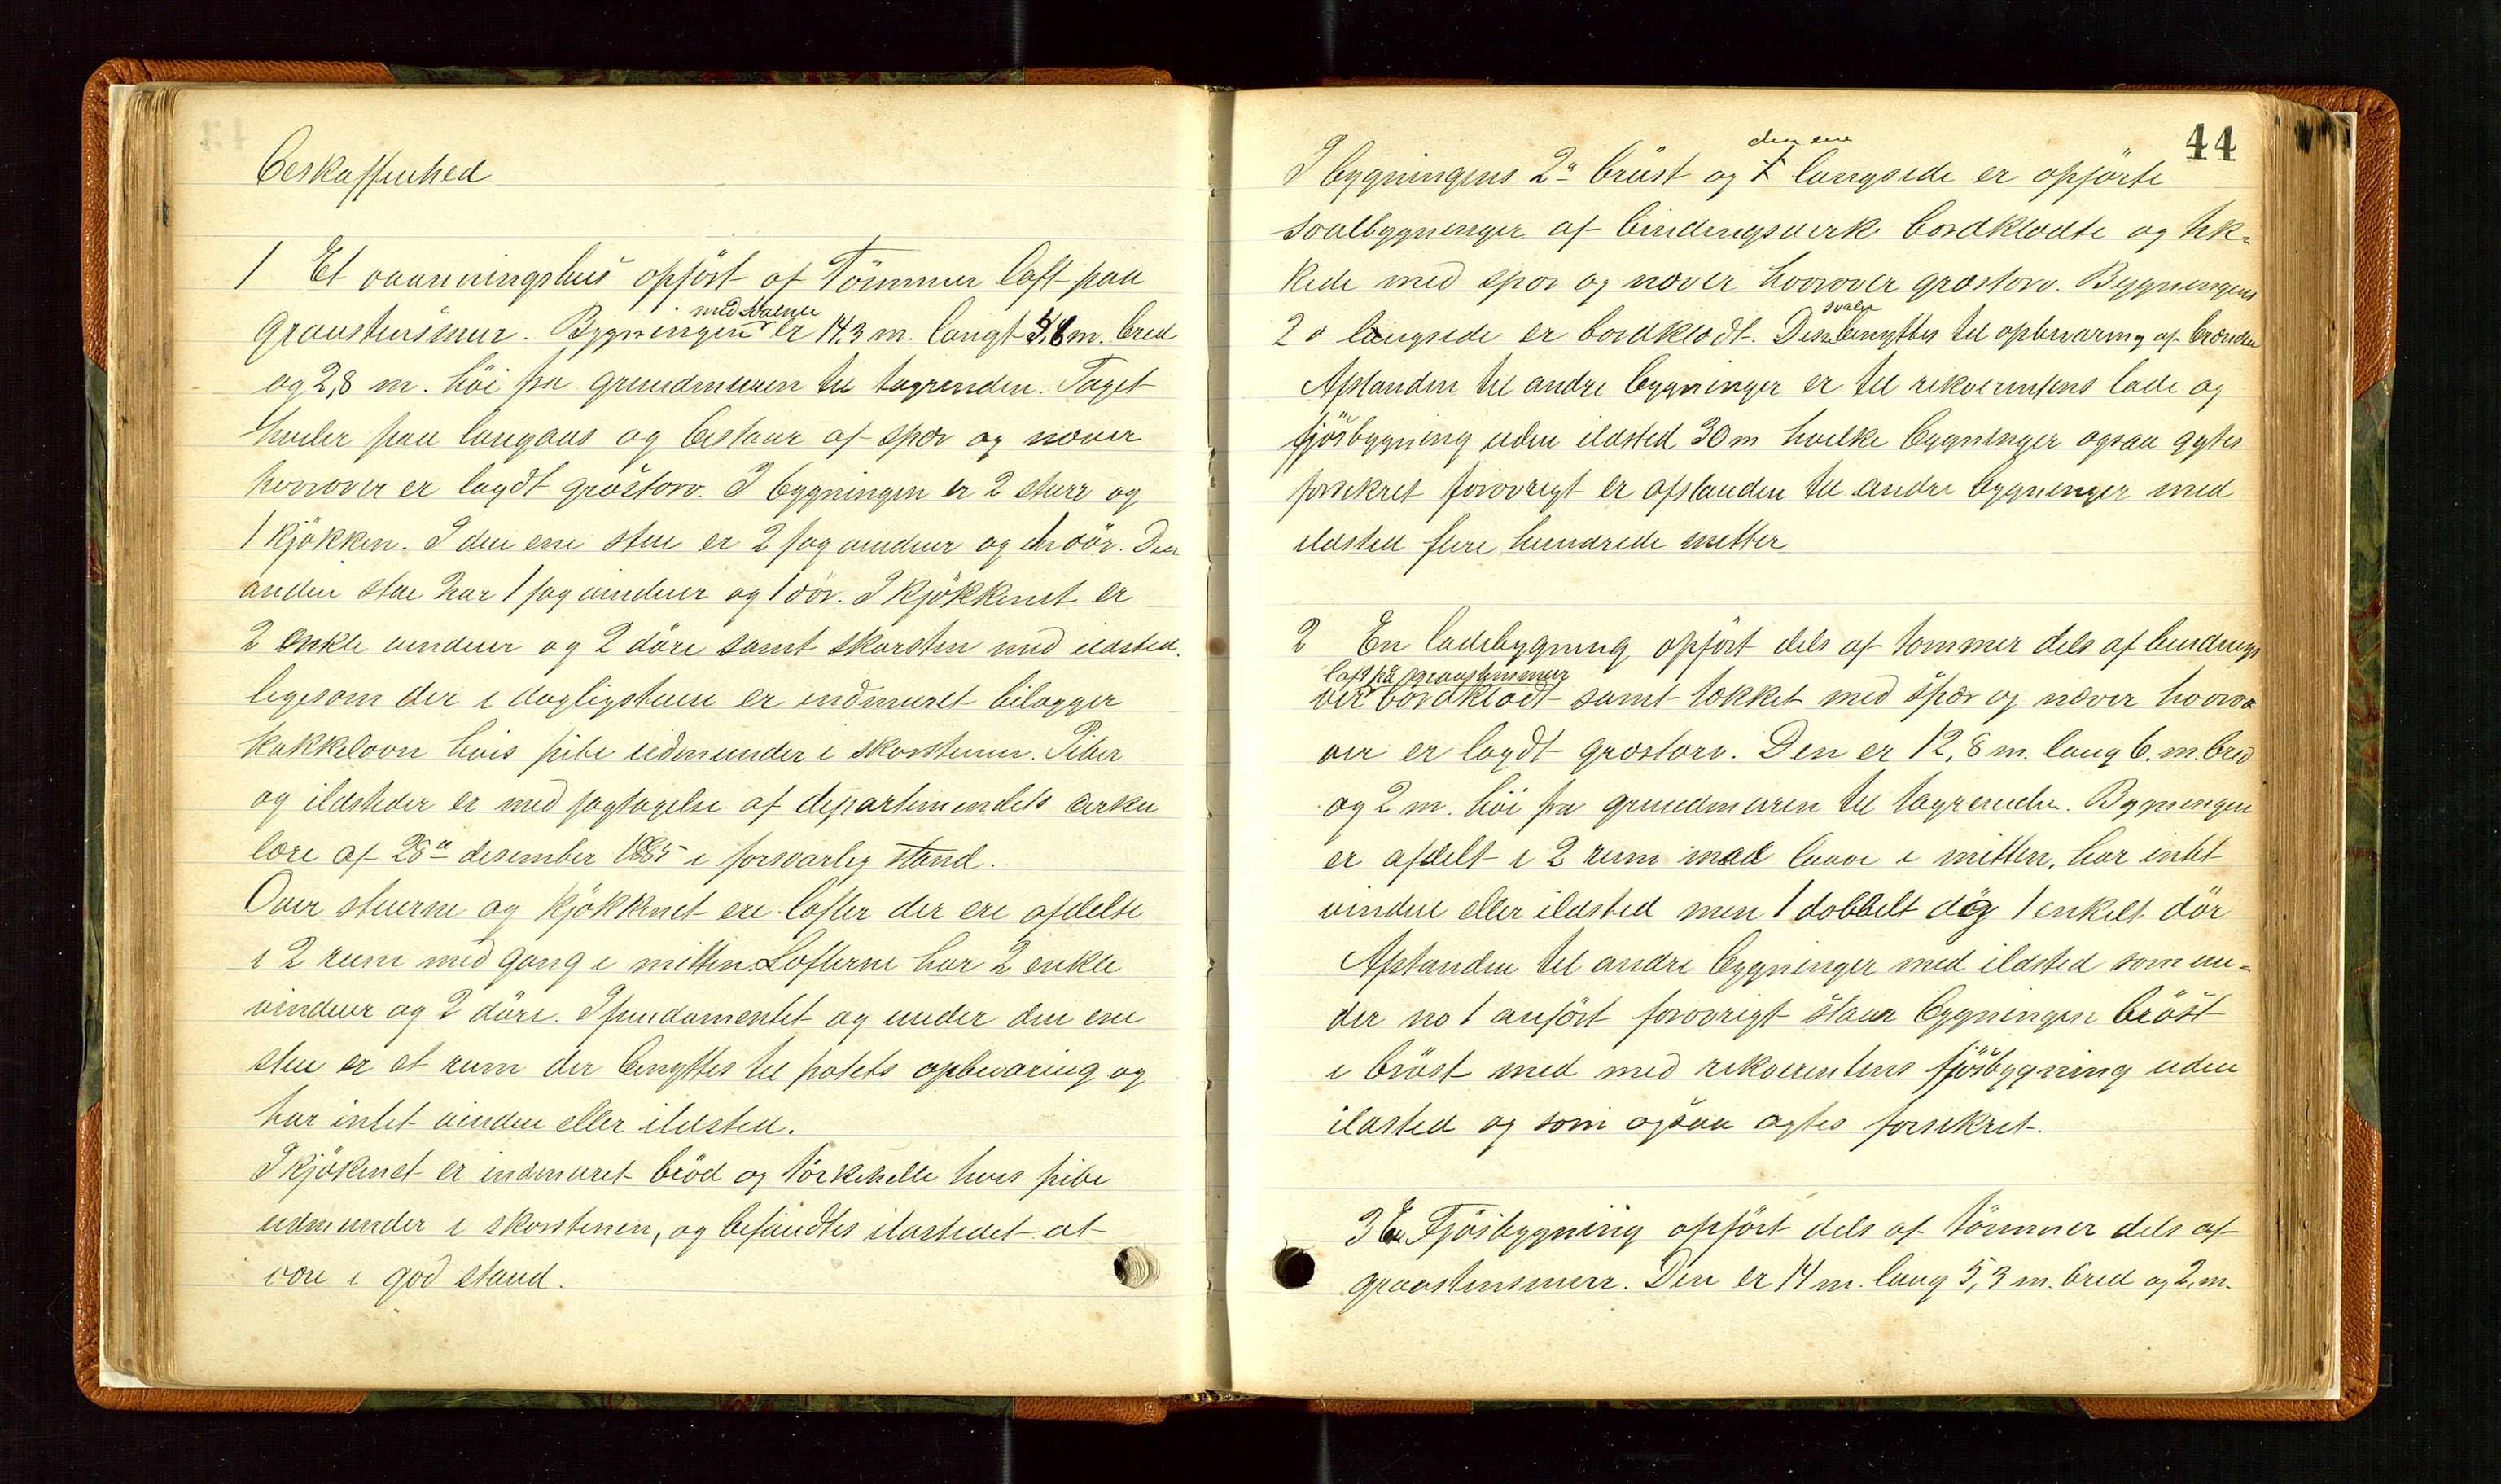 beskaffenhed
1 Et vaaningshus opført af Tömmer laft paa
med svalerne
Graastensmur. Bygningen er 14,3 m. langt 5,6 m. bred
og 2,8 m. höi fra grundmuren til tagrenden. Taget
hviler paa langaas og bestaar af spær og næver
hvorover er lagdt græstorv. I bygningen er 2 stuer og
1 kjökken. I den ene stue er 2 fag vinduer og 1 dör. Den
anden stue har 1 fag vinduer og 1 dör. I kjökkenet er
2 enkle vinduer og 2 döre samt skorsten med ildsted.
ligesom der i dagligstuen er indmuret bilægger
kakkelovn hvis pibe udmunder i skorstenen. Piber
og ildsteder er med iagtagelse af departementets cirku
lære af 28de desember 1885 i forsvarlig stand.
Over stuerne og kjökkenet ere lofter der ere afdelte
i 2 rum med gang i mitten. Lofterne har 2 enkle
vinduer og 2 döre. I fundamentet og under den ene
stue er et rum der benyttes til potets opbevaring og
har intet vindu eller ildsted.
I kjökenet er indmuret bröd og törkehelle hvis pibe
udmunder i skorstenen, og befandtes ildstedet at
være i god stand.
44
den ene
I bygningens 2de bröst og 1 langside er opförte
svalbygninger af bindingsverk bordklædte og tæk-
kede med spær og næver hvorover græstorv. Bygningens
svaler
2 langside er bordklædt. Disse benyttes til opbevaring af brænde
Afstanden til andre bygninger er til rekvirentens lade og
fjösbygning uden ildsted 30 m hvilke bygninger ogsaa agtes
forsikret forövrigt er afstanden til andre bygninger med
ildsted flere hundrede metter
2 En ladebygning opfört dels af tømmer dels af bindings
laft på graastensmur
verk bordklædt samt tækket med spær og næver hvoro
ver er lagdt græstorv. Den er 12,8 m. lang 6. m. bred
og 2 m. höi fra grundmuren til tagrenden. Bygningen
er afdelt i 2 rum med laave i mitten, har intet
vindue eller ildsted men 1 dobbelt og 1 enkelt dör
Afstanden til andre bygninger med ildsted som un-
der no 1 anfört forövrigt staar bygningen bröst
i bröst med med rekvirentens fjösbygning uden
ildsted og som ogsaa agtes forsikret.
3 En Fjösbygning opfört dels af tömmer dels af
graastensmur. Den er 14 m. lang 5,3 m. bred og 2, m.